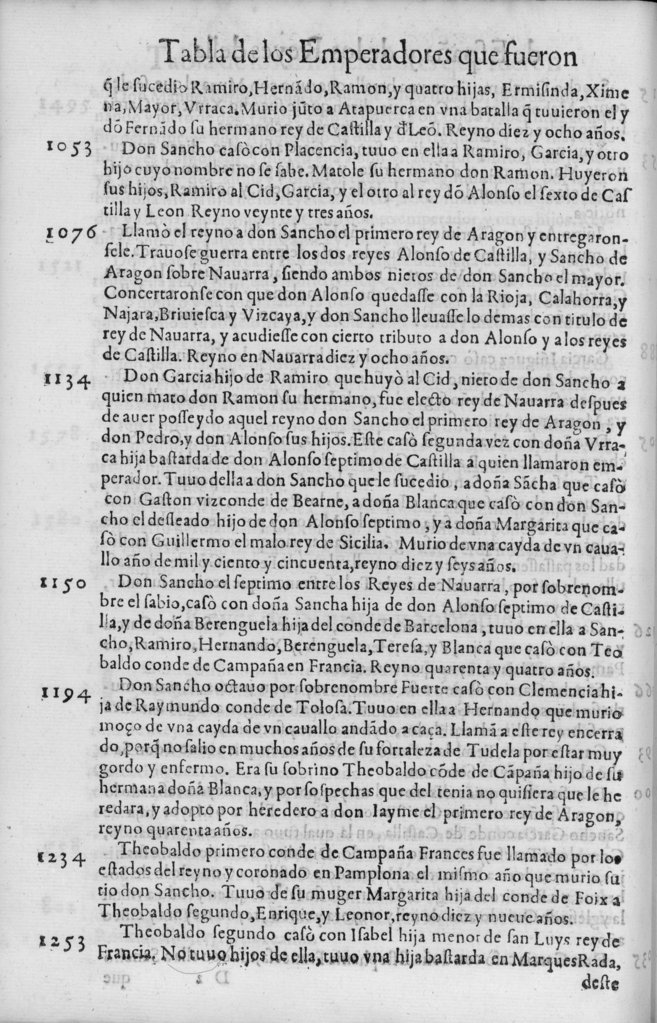 Tabla de los Emperadores que fueron
q̃ le sucedio Ramiro, Hernãdo, Ramon, y quatro hijas, Ermisinda, Xime
na, Mayor, Vrraca. Murio jũto a Atapuerca en vna batalla q̃ tuuieron el y
dõ Fernãdo su hermano rey de Castilla y đ Leõ. Reyno diez y ocho años.
1053 Don Sancho casò con Placencia, tuuo en ella a Ramiro, Garcia, y otro
hijo cuyo nombre no se sabe. Matole su hermano don Ramon. Huyeron
sus hijos, Ramiro al Cid, Garcia, y el otro al rey dõ Alonso el sexto de Cas
tilla y Leon Reyno veynte y tres años.
1076 Llamò el reyno a don Sancho el primero rey de Aragon y entregaron-
sele. Trauose guerra entre los dos reyes Alonso de Castilla, y Sancho de
Aragon sobre Nauarra, siendo ambos nietos de don Sancho el mayor.
Concertaronse con que don Alonso quedasse con la Rioja, Calahorra, y
Najara, Briuiesca y Vizcaya, y don Sancho lleuasse lo demas con titulo de
rey de Nauarra, y acudiesse con cierto tributo a don Alonso y a los reyes
de Castilla. Reyno en Nauarra diez y ocho años.
1134 Don Garcia hijo de Ramiro que huyò al Cid, nieto de don Sancho a
quien mato don Ramon su hermano, fue electo rey de Nauarra despues
de auer posseydo aquel reyno don Sancho el primero rey de Aragon, y
don Pedro, y don Alonso sus hijos. Este casò segunda vez con doña Vrra-
ca hija bastarda de don Alonso septimo de Castilla a quien llamaron em-
perador. Tuuo della a don Sancho que le sucedio, a doña Sãcha que casò
con Gaston vizconde de Bearne, a doña Blanca que casò con don San-
cho el desseado hijo de don Alonso septimo, y a doña Margarita que ca-
sò con Guillermo el malo rey de Sicilia. Murio de vna cayda de vn caua-
llo año de mil y ciento y cincuenta, reyno diez y seys años.
1150 Don Sancho el septimo entre los Reyes de Nauarra, por sobrenom-
bre el sabio, casò con doña Sancha hija de don Alonso septimo de Casti-
lla, y de doña Berenguela hija del conde de Barcelona, tuuo en ella a San-
cho, Ramiro, Hernando, Berenguela, Teresa, y Blanca que casò con Teo
baldo conde de Campaña en Francia. Reyno quarenta y quatro años.
1194 Don Sancho octauo por sobrenombre Fuerte casò con Clemencia hi-
ja de Raymundo conde de Tolosa. Tuuo en ella a Hernando que murio
moço de vna cayda de vn cauallo andãdo a caça. Llamã a este rey encerra
do, porq̃ no salio en muchos años de su fortaleza de Tudela por estar muy
gordo y enfermo. Era su sobrino Theobaldo cõde de Cãpaña hijo de su
hermana doña Blanca, y por sospechas que del tenia no quisiera que le he
redara, y adopto por heredero a don Iayme el primero rey de Aragon,
reyno quarenta años.
1234 Theobaldo primero conde de Campaña Frances fue llamado por los
estados del reyno y coronado en Pamplona el mismo año que murio su
tio don Sancho. Tuuo de su muger Margarita hija del conde de Foix a
Theobaldo segundo, Enrique, y Leonor, reyno diez y nueue años.
1253 Theobaldo segundo casò con Isabel hija menor de san Luys rey de
Francia. No tuuo hijos de ella, tuuo vna hija bastarda en Marques Rada,
deste